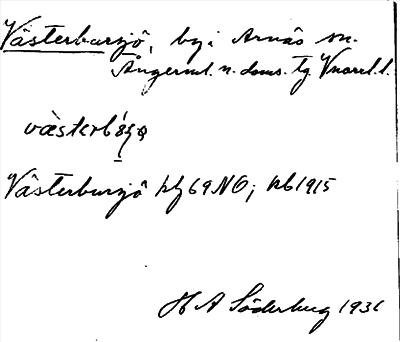 Västerbursjö, by i Arnäs sn.
Ångerml. n. doms. tg Vnorrl. l.
Västerbursjö kbl 69 NO; kb 1915
H A Söderberg 1931